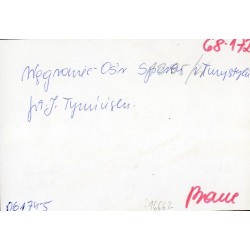 68-172
Węgrowiec - Ośr Sportu i Turystyki
fot. J. Tymiński
061745
16662